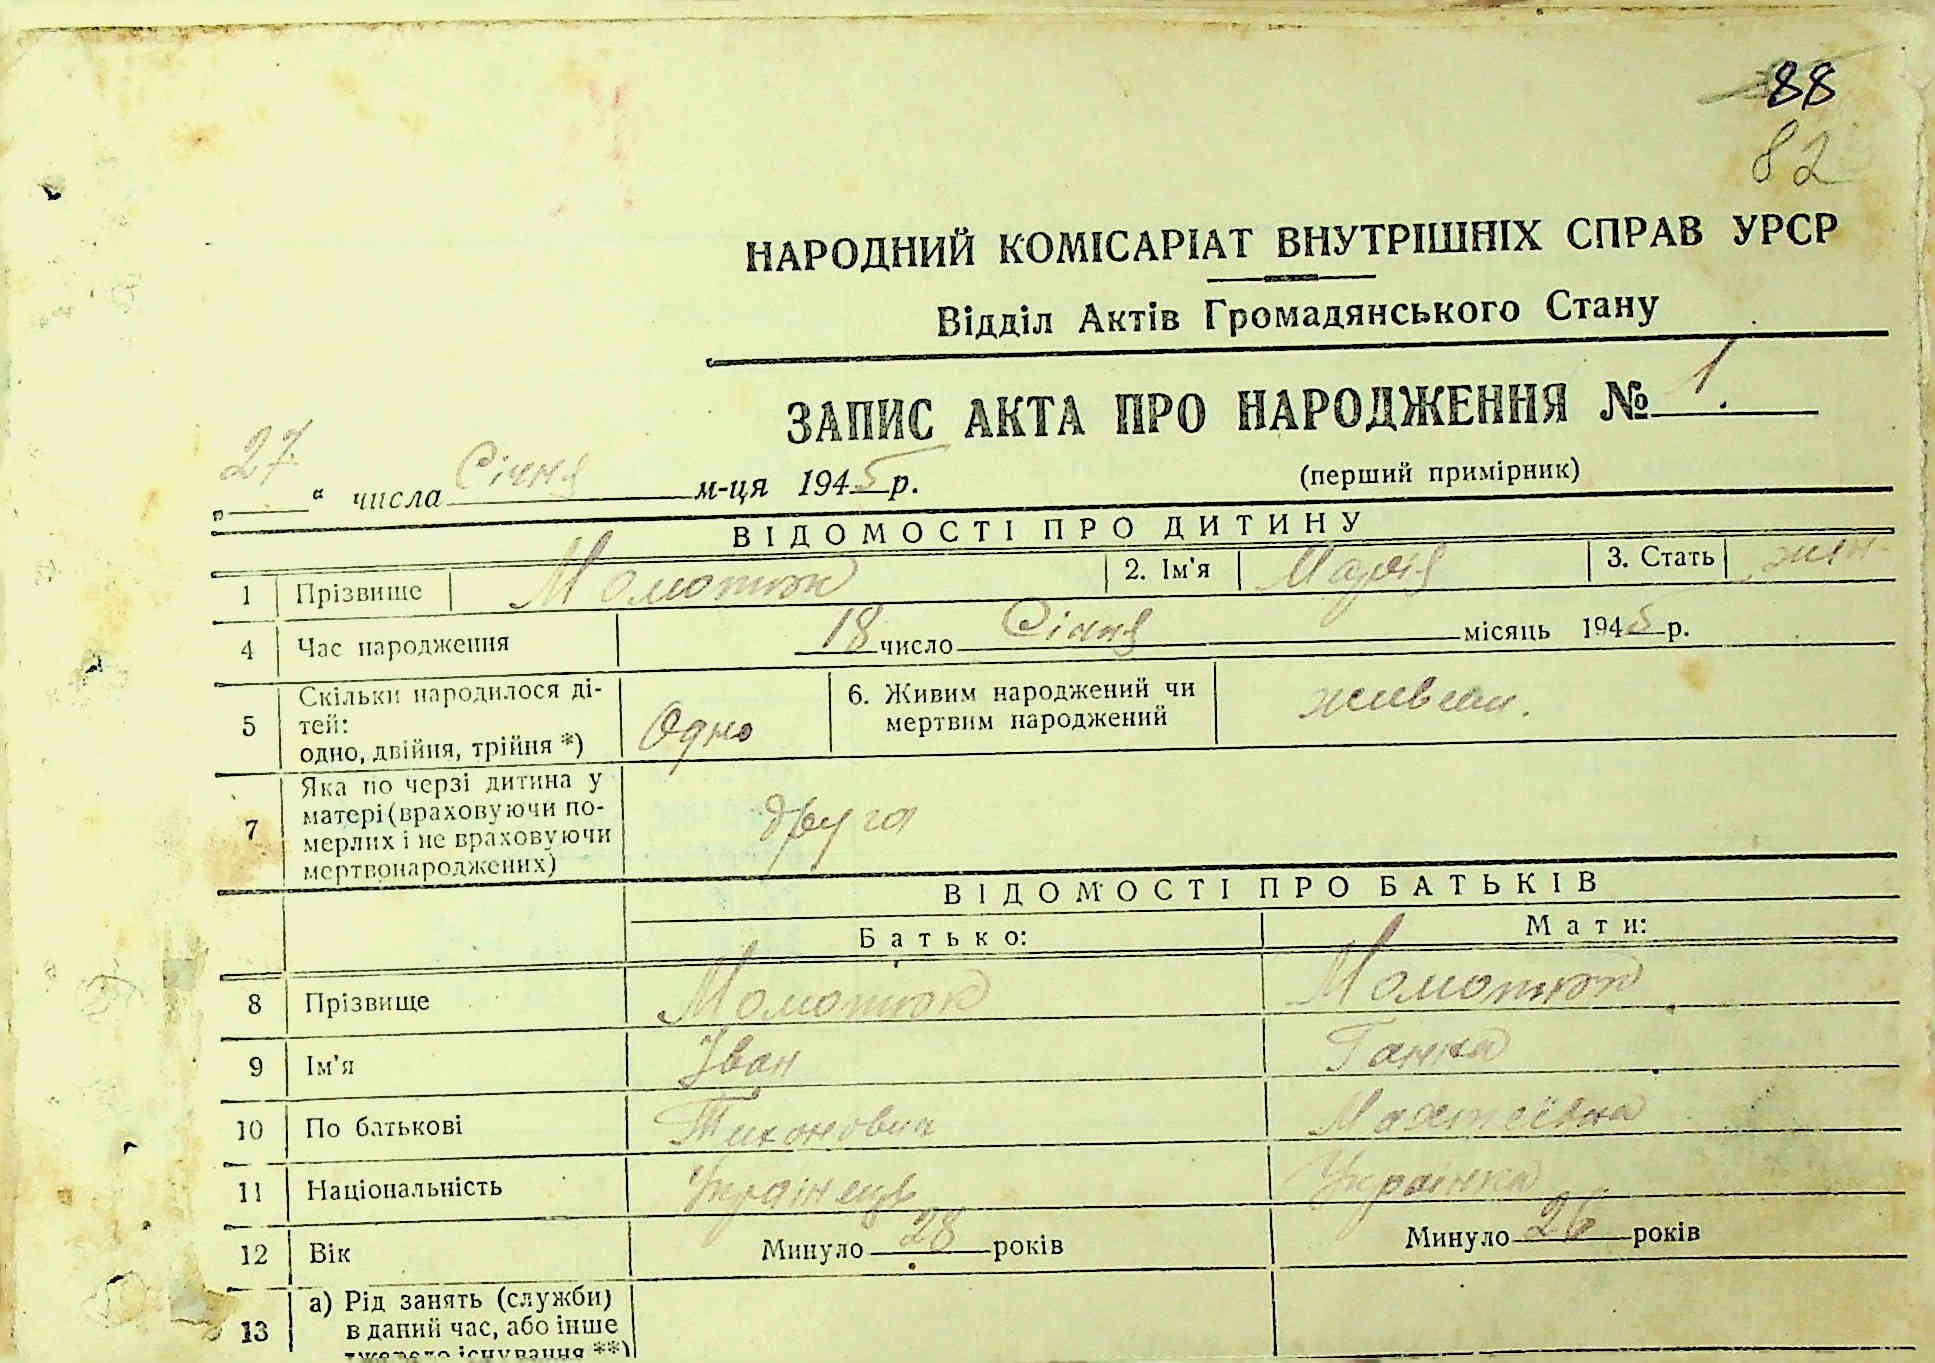 88
82
НАРОДНИЙ КОМІСАРІАТ ВНУТРІШНІХ СПРАВ УРСР
Відділ Актів Громадянського Стану
ЗАПИС АКТА ПРО НАРОДЖЕННЯ № 1.
(перший примірник)
„27“ числа Січня м-ця 1945 р.
ВІДОМОСТІ ПРО ДИТИНУ
1 Прізвище Момотюк 2. Ім'я Марія 3. Стать жін.
4 Час народження 18 число Січня місяць 1945 р.
5 Скільки народилося ді-
тей:
одно, двійня, трійня *) Одно 6. Живим народжений чи
мертвим народжений живим.
7 Яка по черзі дитина у
матері (враховуючи по-
мерлих і не враховуючи
мертвонароджених) друга
ВІДОМОСТІ ПРО БАТЬКІВ
Батько: Мати:
8 Прізвище Момотюк Момотюк
9 Ім'я Іван Ганна
10 По батькові Тихонович
11 Національність Українець Українка
12 Вік Минуло 28 років Минуло 26 років
13 а) Рід занять (служби)
в даний час, або інше
джерело існування **)